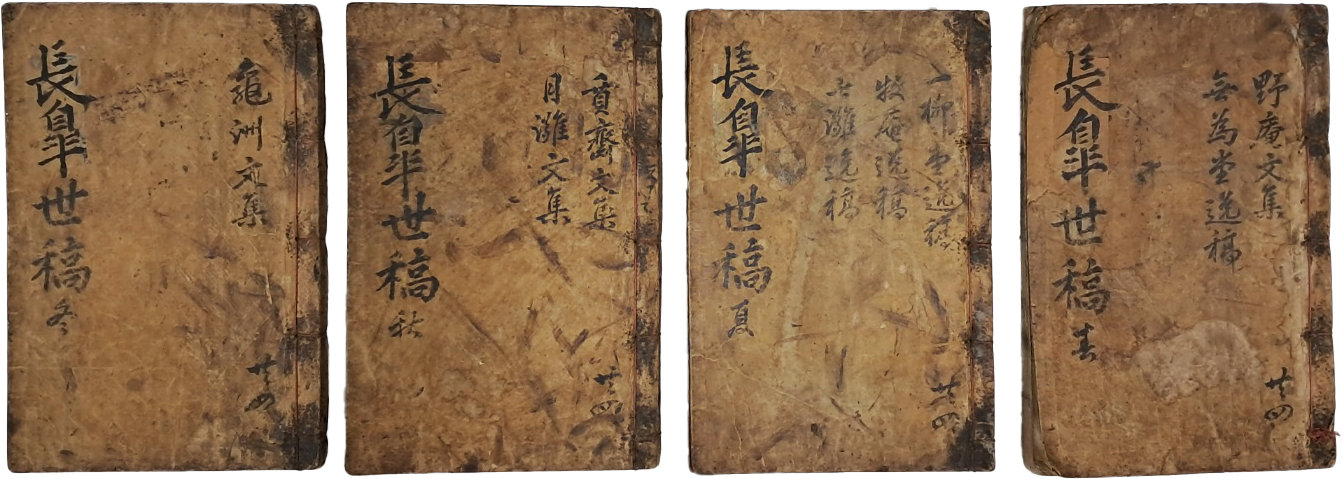 野庵文集
無為堂逸稿
共四
長皐世稿 春
一柳堂逸稿
牧庵逸稿
灘逸稿
共四
長皐世稿 夏
齋文集
月灘文集
共四
長皐世稿 秋
龜洲文集
共四
長皐世稿 冬